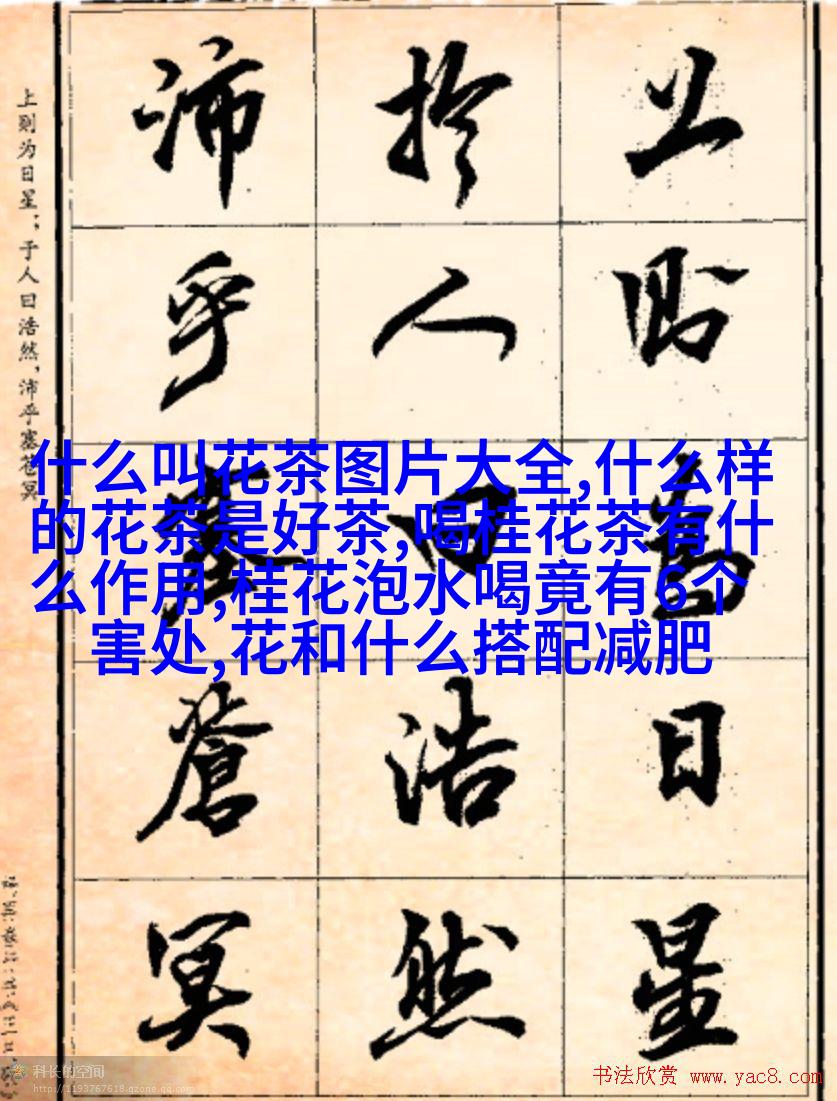 上則為日星
於人曰浩然
沛乎塞蒼冥
上则为日星；于人曰浩然，沛乎塞苍冥
什么叫花茶图片大全,什么样
的花茶是好茶,喝桂花茶有什
么作用,桂花泡水喝竟有6个
害处,花和什么搭配减肥
科长的空间
http://1193767618.qzone.qq.com
书法欣赏 www.yac8.com